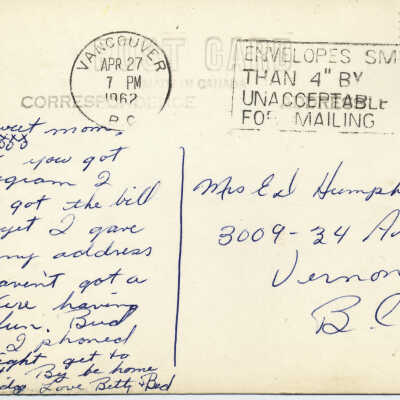 POST CARD
VANCOUVER
APR 27
7 PM
1962
B.C.
ENVELOPES SM
THAN 4" BY
UNACCEPTABLE
FOR MAILING
CORRESPONDENCE
weet mom,
xxx
you got
gram I
got the bill
yet I gave
my address
aven't got a
having
fun. Bud
I phoned
ight get to
By be home
Love Betty & Bud
Mrs Ed Humph
3009-34 A
Vernon
B.C